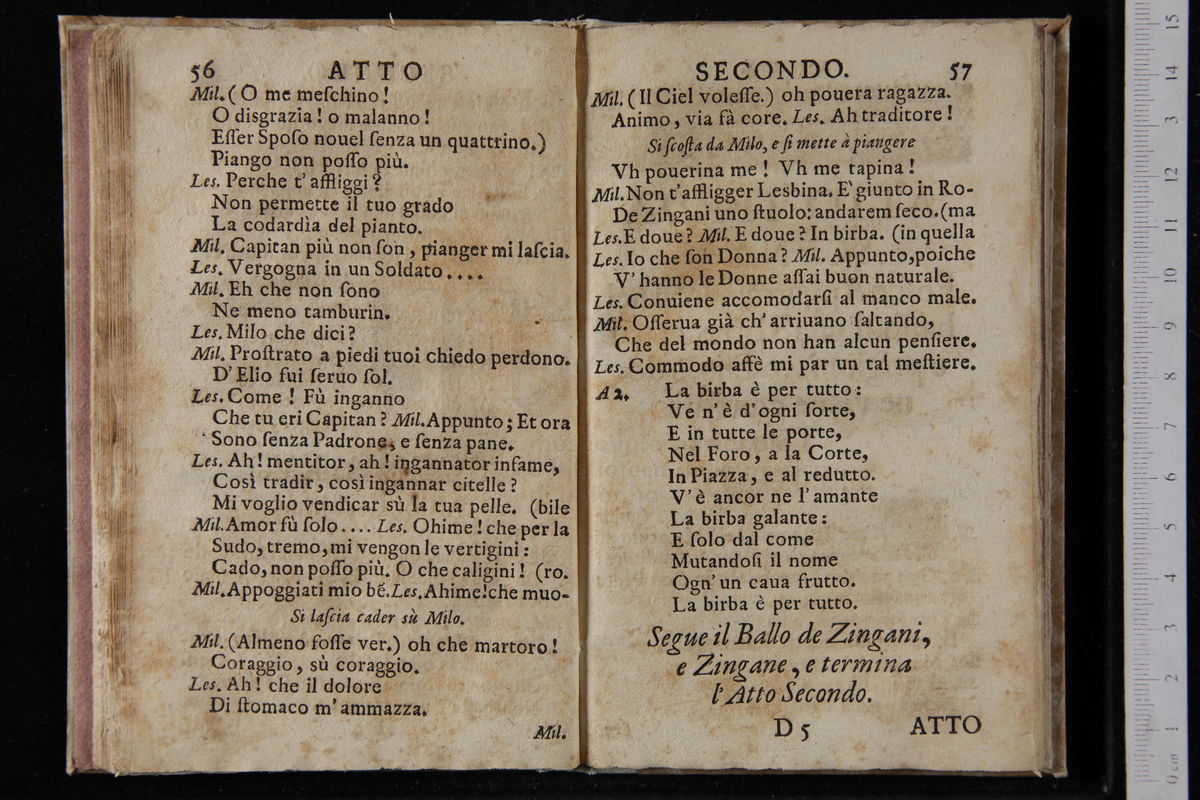 56 ATTO
Mil. (O me meſchino!
O disgrazia! o malanno!
Eſſer Spoſo nouel ſenza un quattrino.)
Piango non poſſo più.
Les. Perche t' affliggi?
Non permette il tuo grado
La codardìa del pianto.
Mil. Capitan più non ſon, pianger mi laſcia.
Les. Vergogna in un Soldato....
Mil. Eh che non ſono
Ne meno tamburin.
Les. Milo che dici?
Mil. Proſtrato a piedi tuoi chiedo perdono.
D' Elio fui ſeruo ſol.
Les. Come! Fù inganno
Che tu eri Capitan? Mil. Appunto; Et ora
Sono ſenza Padrone, e ſenza pane.
Les. Ah! mentitor, ah! ingannator infame,
Così tradir, così ingannar citelle?
Mi voglio vendicar sù la tua pelle. (bile
Mil. Amor fù ſolo.... Les. Ohime! che per la
Sudo, tremo, mi vengon le vertigini:
Cado, non poſſo più. O che caligini! (ro.
Mil. Appoggiati mio bē. Les. Ahime! che muo-
Si laſcia cader sù Milo.
Mil. (Almeno foſſe ver.) oh che martoro!
Coraggio, sù coraggio.
Les. Ah! che il dolore
Di ſtomaco m' ammazza.
Mil.
SECONDO. 57
Mil. (Il Ciel voleſſe.) oh pouera ragazza.
Animo, via fà core. Les. Ah traditore!
Si ſcoſta da Milo, e ſi mette à piangere
Vh pouerina me! Vh me tapina!
Mil. Non t'affligger Lesbina. E' giunto in Ro-
De Zingani uno ſtuolo: andarem ſeco. (ma
Les. E doue? Mil. E doue? In birba. (in quella
Les. Io che ſon Donna? Mil. Appunto, poiche
V' hanno le Donne aſſai buon naturale.
Les. Conuiene accomodarſi al manco male.
Mil. Oſſerua già ch' arriuano ſaltando,
Che del mondo non han alcun penſiere.
Les. Commodo affè mi par un tal meſtiere.
A 2. La birba è per tutto:
Ve n' è d' ogni ſorte,
E in tutte le porte,
Nel Foro, a la Corte,
In Piazza, e al redutto.
V' è ancor ne l' amante
La birba galante:
E ſolo dal come
Mutandoſi il nome
Ogn' un caua frutto.
La birba è per tutto.
Segue il Ballo de Zingani,
e Zingane, e termina
l' Atto Secondo.
D 5 ATTO
15
14
13
12
11
10
9
8
7
6
5
4
3
2
1
0 cm